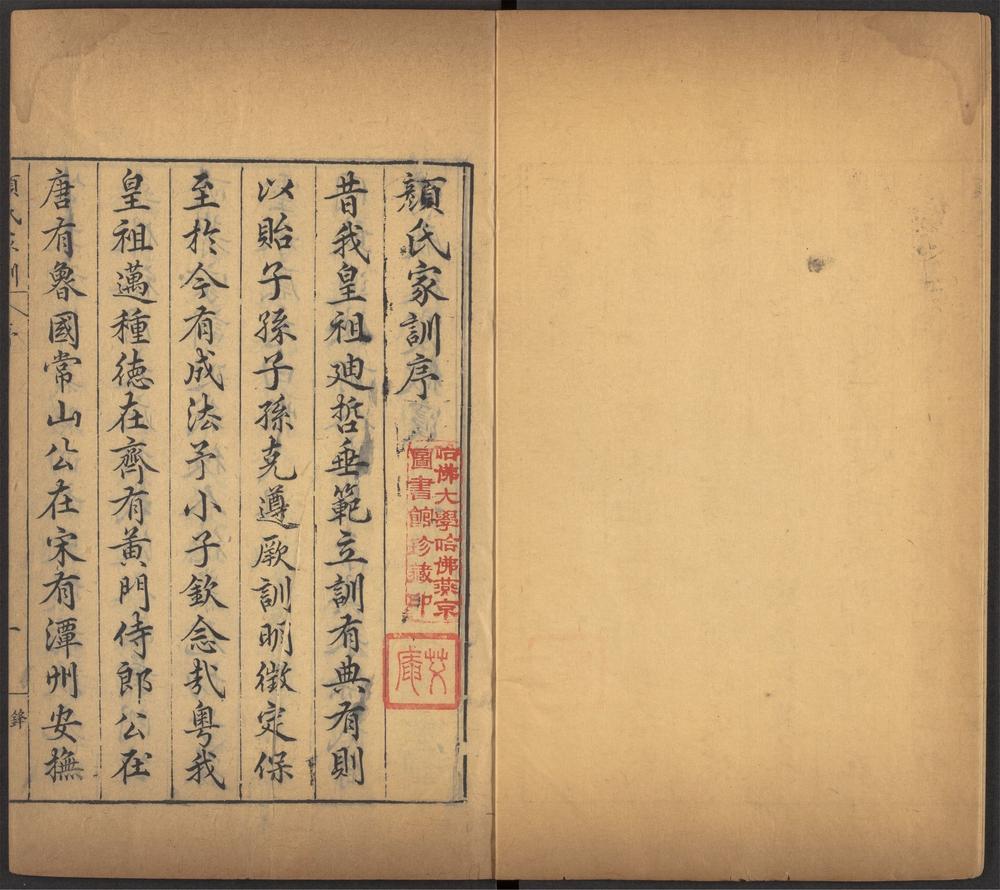 顔氏家訓序
昔我皇祖廸哲垂範立訓有典有則
以貽子孫子孫克遵厥訓明徵定保
至於今有成法予小子欽念㢤粤我
皇祖邁種徳在齊有黄門侍郎公在
唐有魯國常山公在宋有潭州安撫
哈佛大學哈佛燕京
圖書館珍藏印
一
鋒